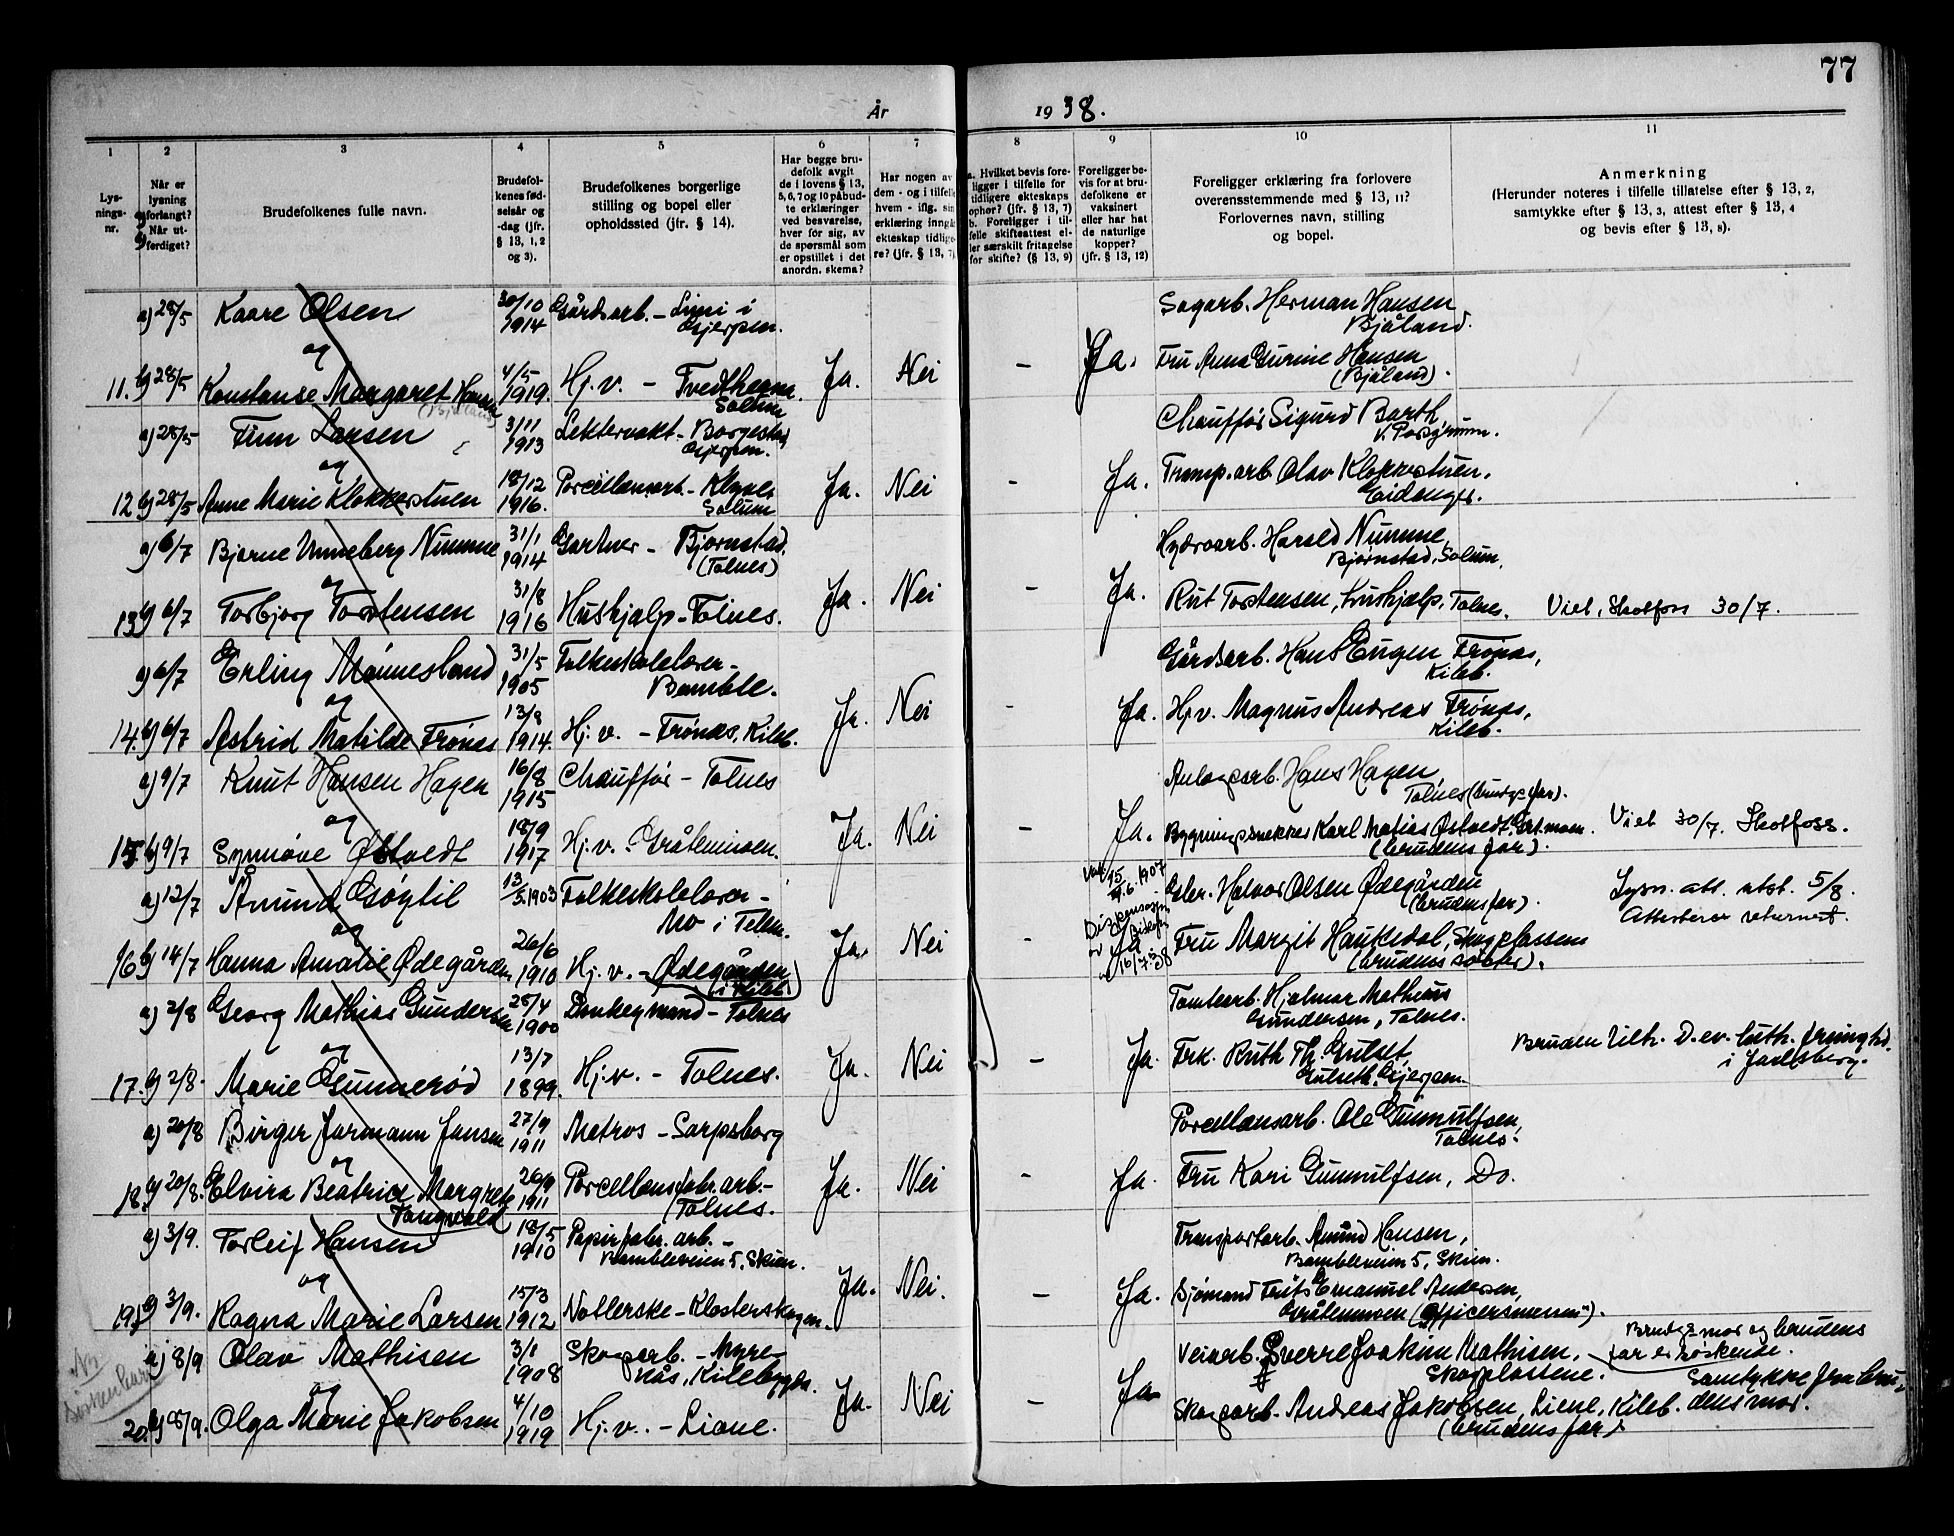 77
År 1938.
1 2 3 4 5 6 7 8 9 10 11
Lys-
nings-
nr.
Når er
lysning
forlangt?
Når ut-
ferdiget?
Brudefolkenes fulle navn.
Brudefol-
kenes fød-
selsår og
-dag (jfr.
§ 13, 1, 2
og 3).
Brudefolkenes borgerlige
stilling og bopel eller
opholdssted (jfr. § 14).
Har begge bru-
defolk avgit
de i lovens § 13,
5, 6, 7 og 10 påbud-
te erklæringer
ved besvarelse,
hver for sig, av
de spørsmål som
er opstillet i det
anordn. skema?
Har nogen av
dem - og i tilfelle
hvem - iflg. sin
erklæring inngåt
ekteskap tidlige-
re? (jfr. § 13, 7)
a. Hvilket bevis fore-
ligger i tilfelle for
tidligere ekteskaps
ophør? (jfr. § 13, 7)
b. Foreligger i til-
felle skifteattest el-
ler særskilt fritagelse
for skifte? (§ 13, 9)
Foreligger be-
vis for at bru-
defolkene er
vaksinert
eller har hat
de naturlige
kopper?
(jfr. § 13, 12)
Foreligger erklæring fra forlovere
overensstemmende med § 13, 11?
Forlovernes navn, stilling
og bopel.
Anmerkning
(Herunder noteres i tilfelle tillatelse efter § 13, 2,
samtykke efter § 13, 3, attest efter § 13, 4
og bevis efter § 13, 8).
a) 28/5 Kaare Olsen 30/10 1914 Gårdsarb. - Limi i Gjerpen. Sagarb. Herman Hansen Bjåland.
og
11. b) 28/5 Konstanse Margaret Hansen (Bjåland) 4/5 1919. Hj.v. - Tvedtheam. Solum Ja. Nei - Ja. Fru Anna Gurine Hansen (Bjåland).
a) 28/5 Finn Larsen 3/11 1913 Lektervakt - Borgestad Gjerpen. Chauffør Sigurd Barth, V. Porsgrunn.
og
12 b) 28/5 Anne Marie Klokkerstuen 18/12 1916. Porcellensarb. - Klyve, Solum Ja. Nei - Ja. arb. Olav Klokkerstuen, Eidanger.
a) 6/7 Bjarne Unneberg Numme 31/1 1914 Gartner - Bjørnstad. (Tolnes) Hydroarb. Harald Numme, Bjørnstad, Solum.
og
13. b) 6/7 Torbjørg Torstensen 31/8 1916 Hushjælp - Tolnes. Ja. Nei - Ja. Rut Torstensen, hushjælp, Tolnes. Viet, Skotfoss 30/7.
a) 6/7 Erling Mannesland 31/5 1905 Folkeskolelærer - Bamble. Gårdsarb. Hans Eugen Frønæs, Kileb.
og
14. b) 6/7 Astrid Matilde Frønæs 13/8 1914. Hj.v. - Frønæs, Kileb. Ja. Nei - Ja. Hj.v. Magnus Andreas Frønæs, Kileb.
a) 9/7 Knut Hansen Hagen 16/8 1915 Chauffør - Tolnes Anlægsarb. Hans Hagen, Tolnes (brudgs far).
og
15. b) 9/7 Synnøve Østvedt 18/9 1917 Hj.v. Gråtenmoen. Ja. Nei - Ja. Bygningssnekker Karl Matias Østvedt, Gråtmoen. (brudens far). Viet 30/7. Skotfoss.
a) 12/7 Åmund Gøytil 13/5 1903 Folkeskolelærer - Mo i Telem. Gbr. Halvor Olsen Ødegården (brudens far). Lysn. att. utst. 5/8. Attester returnert.
og
16 b) 14/7 Hanna Amalie Ødegården 26/6 1910 Hj.v. - Ødegården i Kileb. Ja. Nei - Dispensasjon 16/7.38 Ja Fru Margit Haukedal, Skogplassen (brudens søster).
a) 2/8 Georg Mathias Gundersen 28/4 1900 Donkeymand - Tolnes Tomtearb. Hjalmar Mathias Gundersen, Tolnes.
og
17. b) 2/8. Marie Gunnerød 13/7 1899. Hj.v. - Tolnes. Ja. Nei - Ja. Frk. Ruth Th. Gulset, Gulseth, Gjerpen. Bruden tilh. D. ev. luth. frimenighed i Jarlsberg.
a) 20/8 Birger Jarmann Jansen 27/9 1911 Matros - Sarpsborg Porcellænsarb. Ole Gunnulfsen, Tolnes.
og
18. b) 20/8. Elvira Beatrice Margrete Tangvald 26/9 1911 Porcellænsfabr.arb. - Tolnes. Ja. Nei - Ja. Fru Kari Gunnulfsen, Do.
a) 3/9. Torleif Hansen 18/5 1910 Papirfabr. arb. - Bambleveien 5, Skien. Transportarb. Amund Hansen, Bambleveien 5, Skien.
og
19. b) 3/9. Ragna Marie Larsen 15/3 1912 Vatlerske - Klosterskogen. Ja. Nei. - Ja. Sjømand Frits Emanuel Andersen, Gråtenmoen ("Officersmessen").
a) 8/9 Olav Mathisen 3/1 1908 Skogsarb. - Myrenås, Kilebygden. Veiarb. Sverre Joakim Mathisen, Skogplassene. Brudgs mor og brudens far er søskende.
og
20. b) 8/9. Olga Marie Jakobsen 4/10 1919 Hj.v. - Liane. Ja. Nei - Ja Skogsarb. Andreas Jakobsen, Liene, Kileb. (brudens far). Samtykke fra brudens mor.